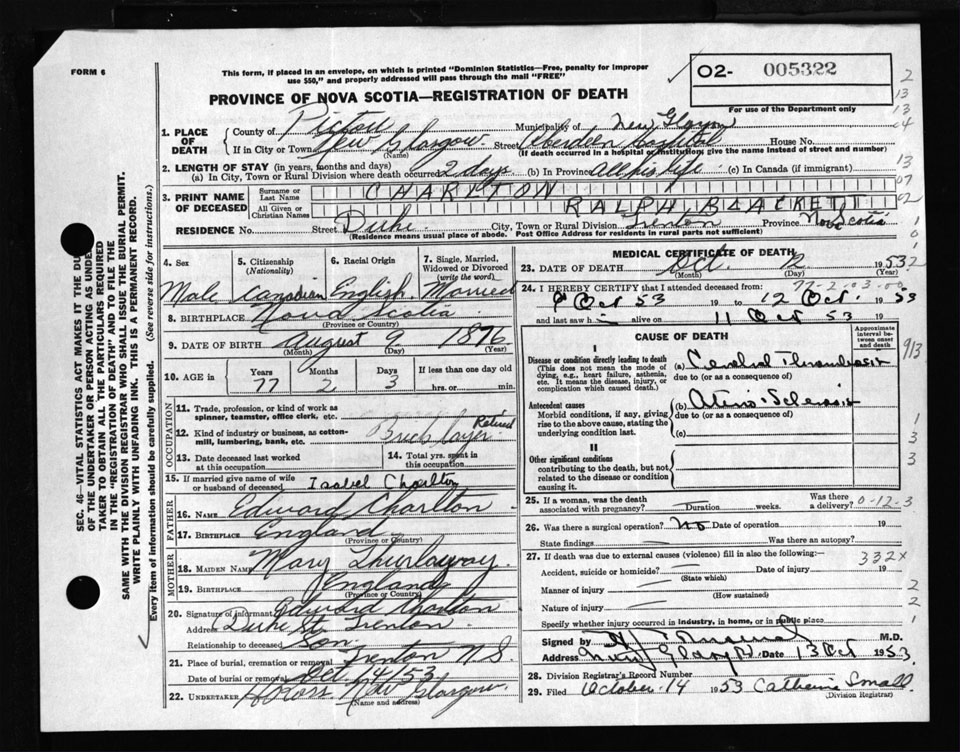 FORM 6
This form, if placed in an envelope, on which is printed "Dominion Statistics—Free, penalty for improper
use $50," and properly addressed will pass through the mail "FREE"
02- 005322
For use of the Department only
PROVINCE OF NOVA SCOTIA—REGISTRATION OF DEATH
1. PLACE OF DEATH
County of Pictou Municipality of New Glasgow
If in City or Town New Glasgow (Name) Street Aberdeen Hospital House No.
(If death occurred in a hospital or institution, give the name instead of street and number)
2. LENGTH OF STAY (in years, months and days)
(a) In City, Town or Rural Division where death occurred 2 days (b) In Province All his life (c) In Canada (if immigrant)
3. PRINT NAME OF DECEASED
Surname or Last Name CHARLTON
All Given or Christian Names RALPH BLACKETT
RESIDENCE No. Street Duke City, Town or Rural Division Trenton Province Nova Scotia
(Residence means usual place of abode. Post Office Address for residents in rural parts not sufficient)
4. Sex
Male
5. Citizenship (Nationality)
Canadian
6. Racial Origin
English
7. Single, Married, Widowed or Divorced (write the word)
Married
8. BIRTHPLACE Nova Scotia
(Province or Country)
9. DATE OF BIRTH August 9 1876
(Month) (Day) (Year)
10. AGE in Years 77 Months 2 Days 3 If less than one day old hrs. or min.
OCCUPATION
11. Trade, profession, or kind of work as spinner, teamster, office clerk, etc.
12. Kind of industry or business, as cotton-mill, lumbering, bank, etc.
Bricklayer Retired
13. Date deceased last worked at this occupation
14. Total yrs. spent in this occupation
15. If married give name of wife or husband of deceased Isabel Charlton
FATHER
16. Name Edward Charlton
17. Birthplace England
(Province or Country)
MOTHER
18. Maiden Name Mary
19. Birthplace England
(Province or Country)
20. Signature of informant Edward Charlton
Address Duke St. Trenton
Relationship to deceased Son
21. Place of burial, cremation or removal Trenton N.S.
Date of burial or removal Oct 14/53
22. Undertaker Ross New Glasgow
(Name and address)
MEDICAL CERTIFICATE OF DEATH
23. DATE OF DEATH Oct. 12 1953
(Month) (Day) (Year)
24. I HEREBY CERTIFY that I attended deceased from: 77-2-03-00
9 Oct 53 19 to 12 Oct. 1953
and last saw h alive on 11 Oct 53 19
CAUSE OF DEATH
Approximate interval between onset and death
I
Disease or condition directly leading to death
(This does not mean the mode of dying, e.g., heart failure, asthenia, etc. It means the disease, injury, or complication which caused death.)
(a) Cerebral Thrombosis
due to (or as a consequence of)
Antecedent causes
Morbid conditions, if any, giving rise to the above cause, stating the underlying condition last.
(b)
due to (or as a consequence of)
(c)
II
Other significant conditions
contributing to the death, but not related to the disease or condition causing it
25. If a woman, was the death associated with pregnancy? Duration weeks. Was there a delivery?
0-12-3
26. Was there a surgical operation? No Date of operation 19
State findings Was there an autopsy?
27. If death was due to external causes (violence) fill in also the following:—
332X
Accident, suicide or homicide? Date of injury 19
(State which)
Manner of injury
(How sustained)
Nature of injury
Specify whether injury occurred in industry, in home, or in public place
Signed by M.D.
Address New Glasgow Date 13 Oct 1953
28. Division Registrar's Record Number
29. Filed October 14 1953 Catherine Small
(Division Registrar)
SEC. 46—VITAL STATISTICS ACT MAKES IT THE DU
OF THE UNDERTAKER OR PERSON ACTING AS UNDE
TAKER TO OBTAIN ALL THE PARTICULARS REQUIRED
IN THE "REGISTRATION OF DEATH" AND TO FILE THE
SAME WITH THE DIVISION REGISTRAR WHO SHALL ISSUE THE BURIAL PERMIT.
WRITE PLAINLY WITH UNFADING INK. THIS IS A PERMANENT RECORD.
Every item of information should be carefully supplied. (See reverse side for instructions.)
2
13
13
04
13
07
02
913
1
3
3
2
2
1